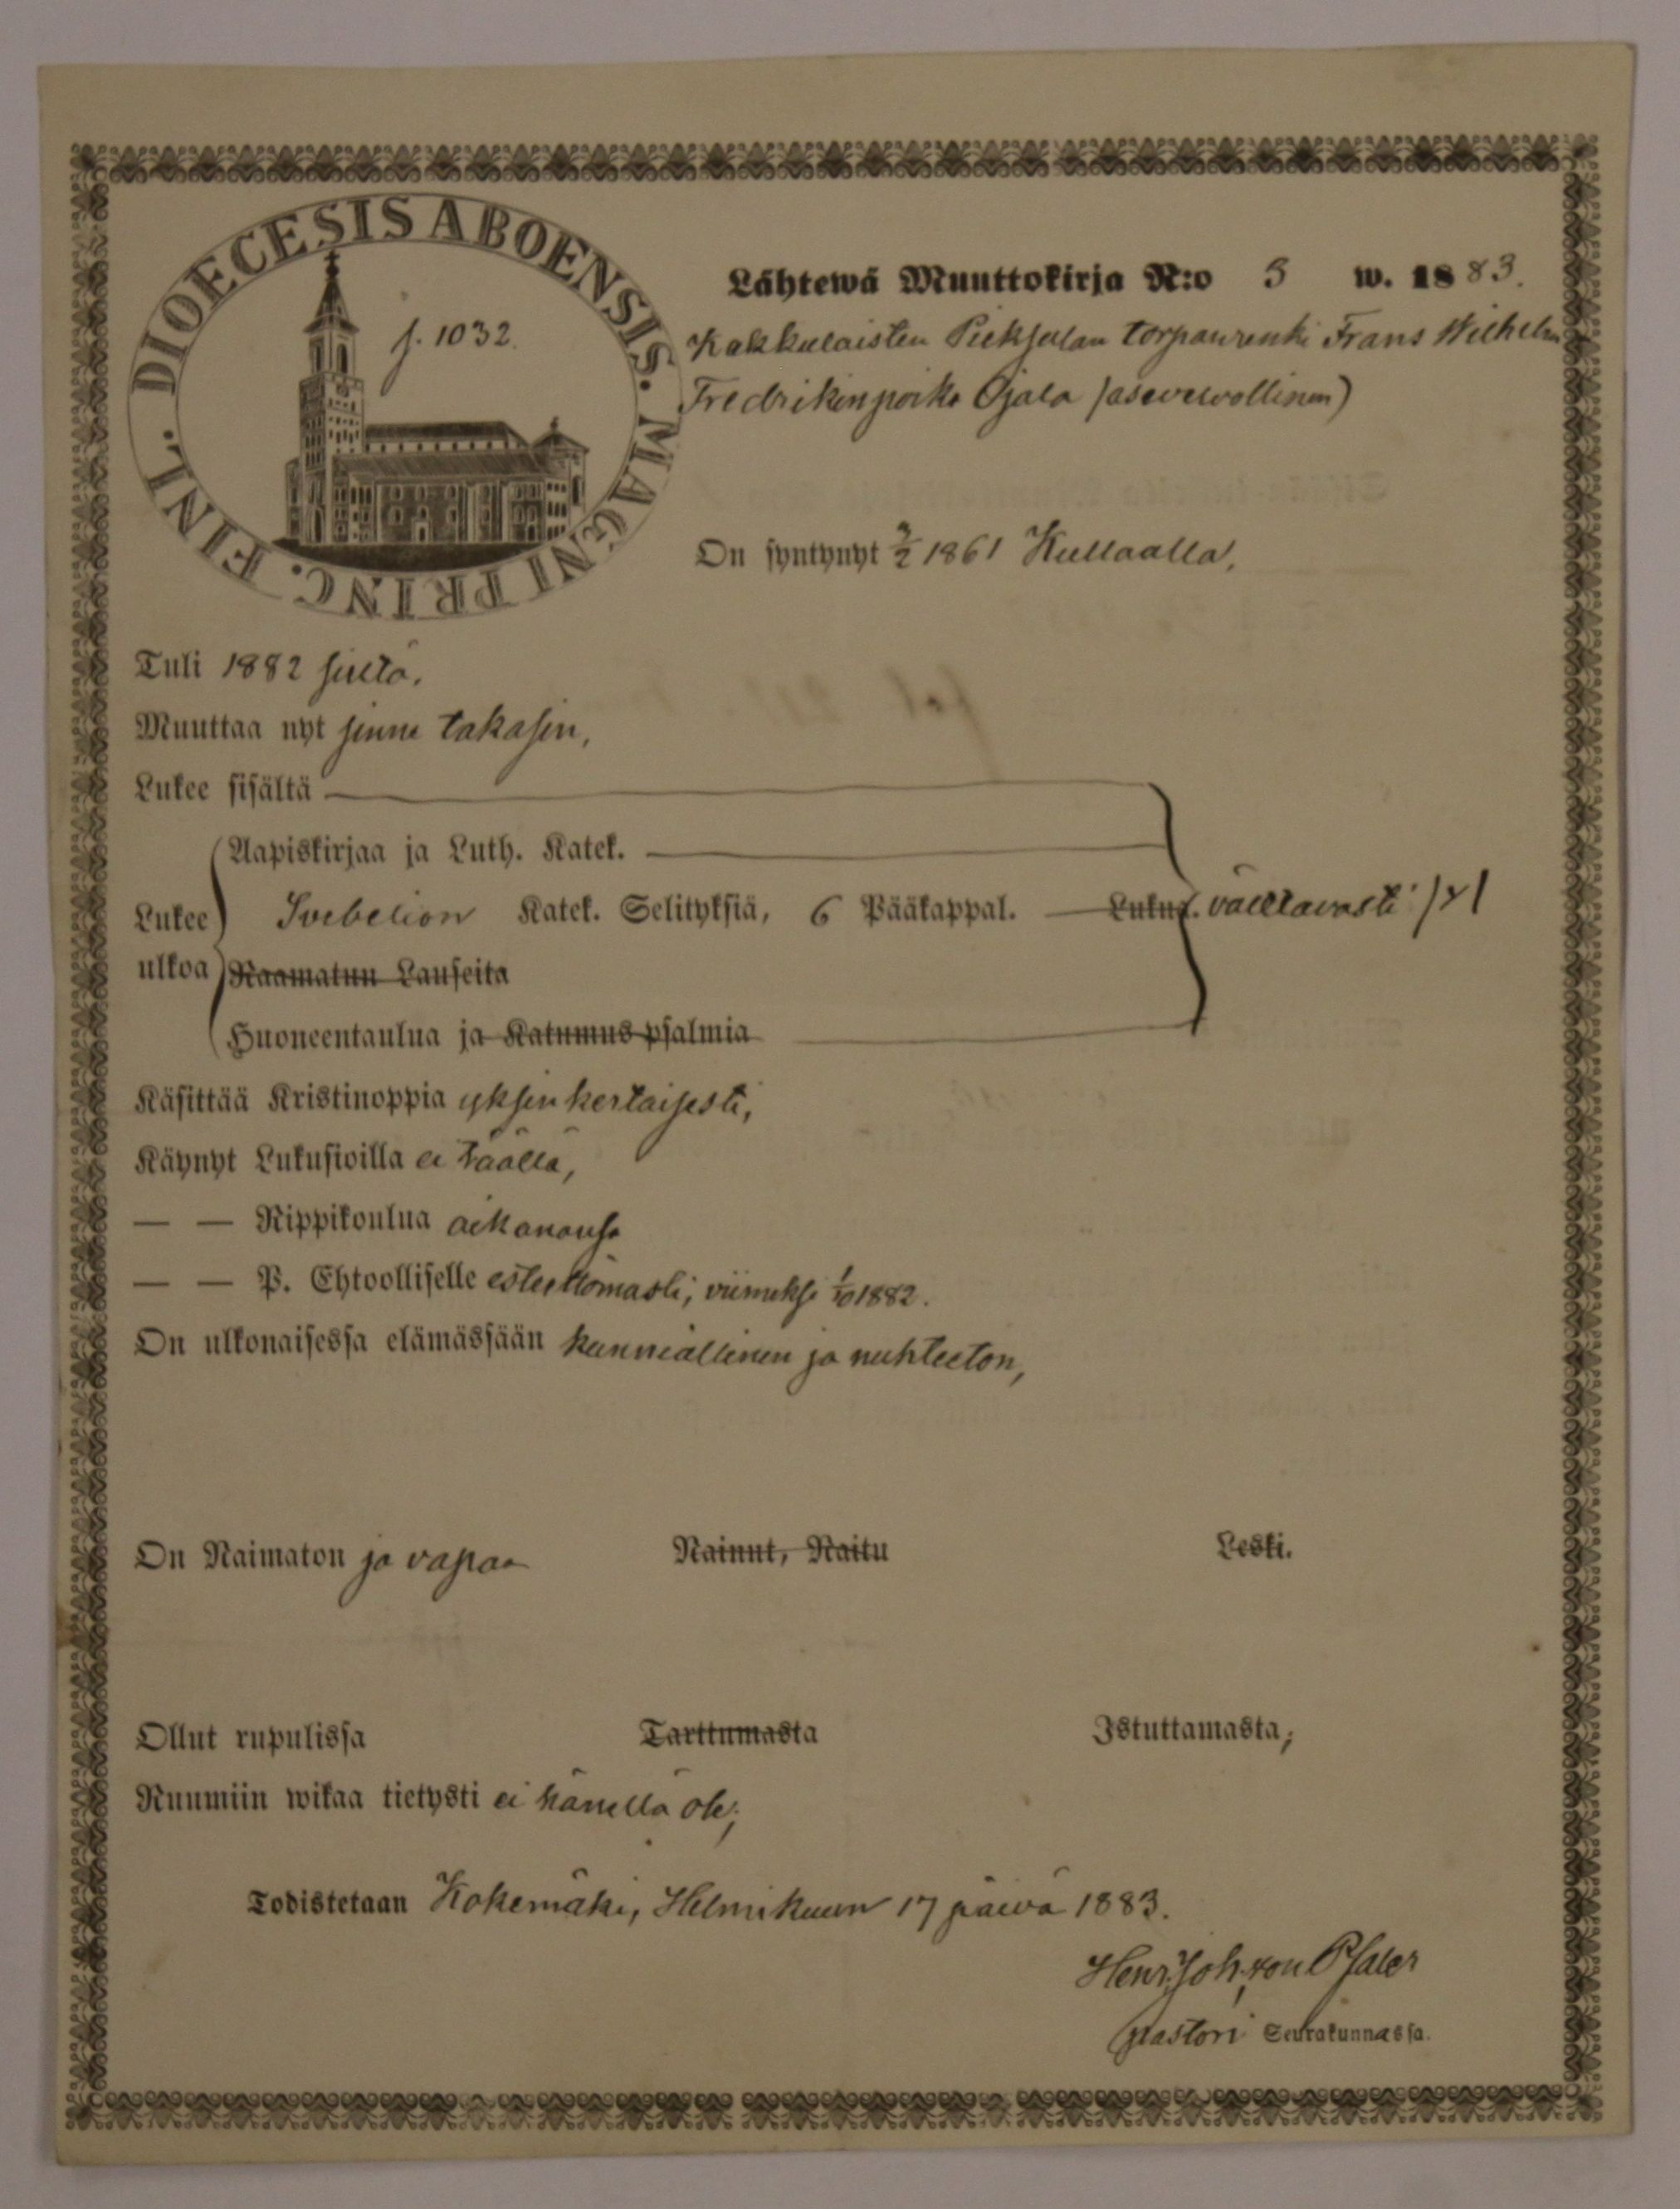 DIOECESIS ABOENSIS. MAGNI PRINC. FINL.
f. 1032.
Lähtewä Muuttokirja N:o 3 w. 1883.
Kakkulaisten Pieksulan torpanrenki Frans Wilhelm
Fredrikinpoika Ojala (asevelvollinen)
On syntynyt 3/2 1861 Kullaalla,
Tuli 1882 sieltä.
Muuttaa nyt sinne takasin,
Lukee sisältä
Aapiskirjaa ja Luth. Katek.
Lukee Svebelion Katek. Selityksiä, 6 Pääkappal. Lukua. välttävästi
ulkoa Raamatun Lauseita
Huoneentaulua ja Katumus psalmia
Käsittää Kristinoppia yksinkertaisesti,
Käynyt Lukusioilla ei täällä,
— — Rippikoulua aikanansa
— — P. Ehtoolliselle esteettömästi, viimeksi 1/10 1882.
On ulkonaisessa elämässään kunniallinen ja nuhteeton,
On Naimaton ja vapaa Nainut, Naitu Leski.
Ollut rupulissa Tarttumasta Istuttamasta;
Ruumiin wikaa tietysti ei hänellä ole;
Todistetaan Kokemäki, Helmikuun 17 päivä 1883.
Henr. Joh. von Pfaler
pastori Seurakunnassa.